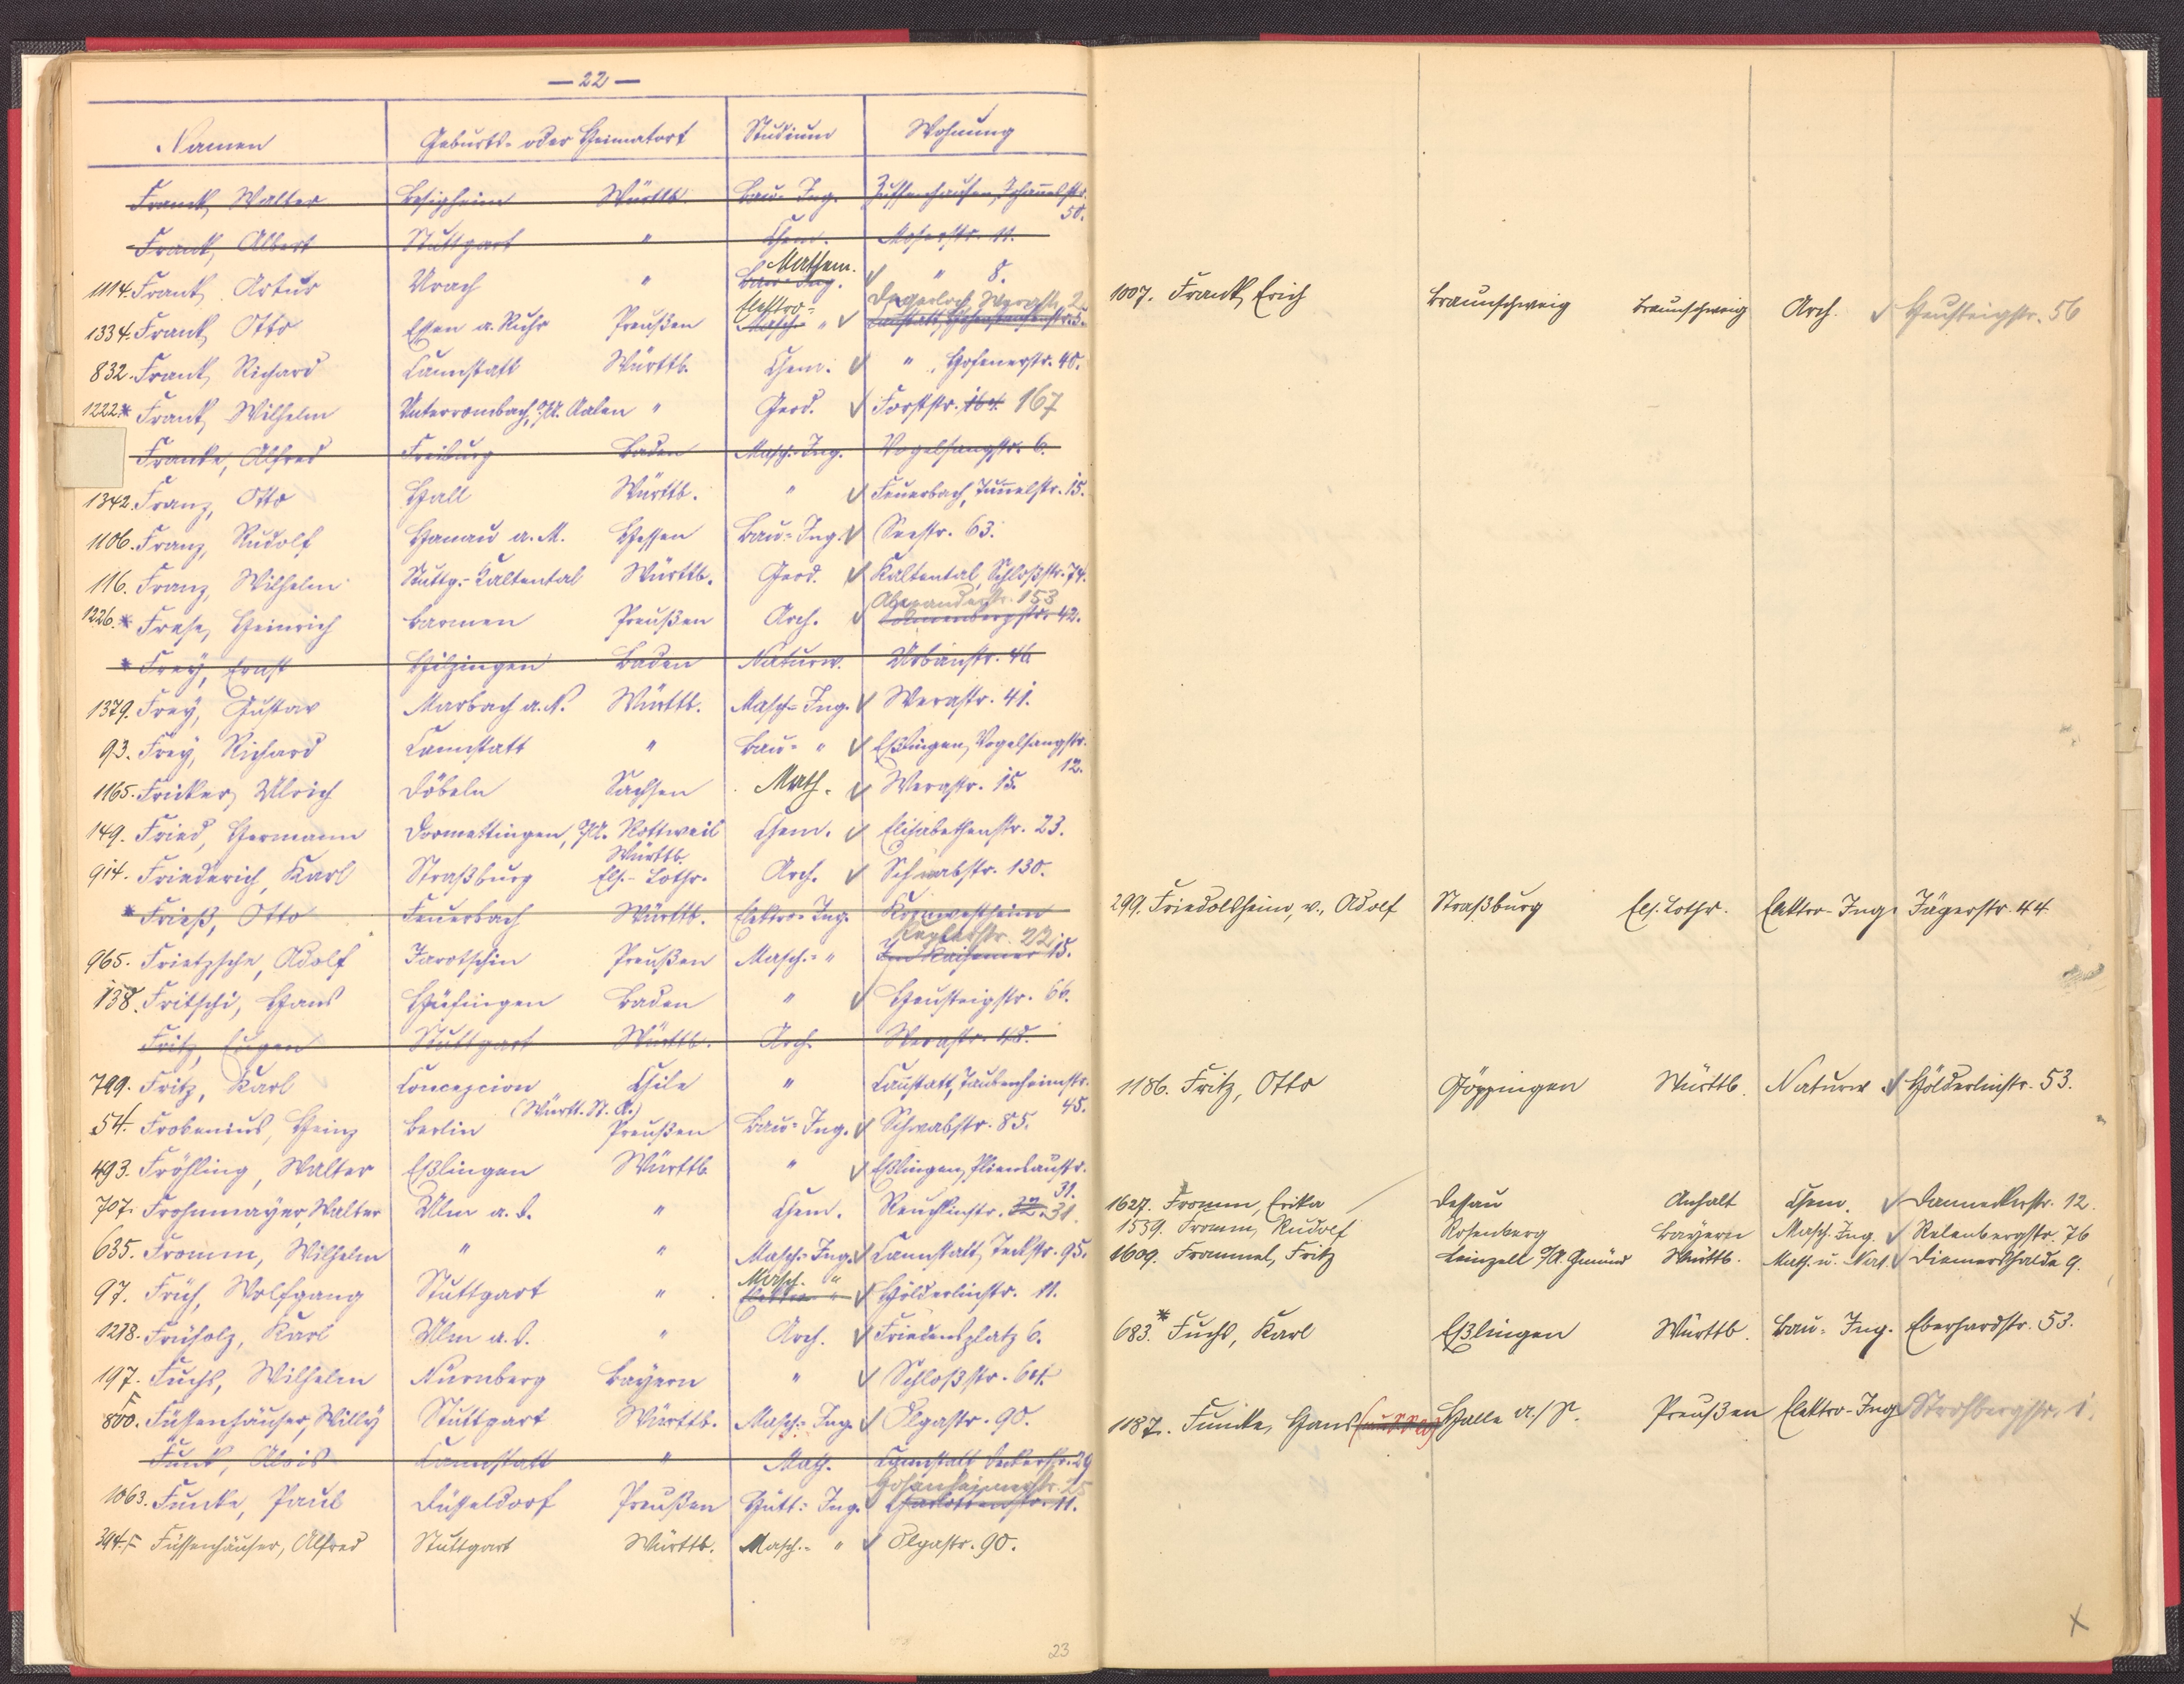 — 22 —
Namen Geburts- oder Heimatort Studium Wohnung
Franck, Walter Besigheim Württb. Bau-Ing. Zuffenhausen, Johannesstr. 50.
Frank, Albert Stuttgart " Chem. Moserstr. 11.
1114. Frank, Artur Urach " Bau-Ing. Mathem. " 8.
1334. Frank, Otto Essen a. Ruhr Preußen Masch. Elektro- " Degerloch,
832. Frank, Richard Cannstatt Württb. Chem. " , Hofenerstr. 40.
1222.* Frank, Wilhelm Unterrombach, O/A. Aalen " Geod. Forststr. 164. 167
Franke, Alfred Freiburg Baden Masch.-Ing. Vogelsangstr. 6.
1342. Franz, Otto Hall Württb. " Feuerbach, Tunnelstr. 15.
1106. Franz, Rudolf Hanau a. M. Hessen Bau-Ing. Seestr. 63.
116. Franz, Wilhelm Stuttg.-Kaltental Württb. Geod. Kaltental, Schloßstr. 74.
1226.* Frese, Heinrich Barmen Preußen Arch. Alexanderstr. 153
* Frey, Ernst Hilzingen Baden Naturw. Urbanstr. 46
1379. Frey, Gustav Marbach a. N. Württb. Masch-Ing. Werastr. 41.
93. Frey, Richard Cannstatt " Bau- " Eßlingen, Vogelsangstr. 12.
1165. Fricker, Ulrich Döbeln Sachsen Math. Werastr. 15.
149. Fried, Hermann Dormettingen, O/A. Rottweil Württb. Chem. Elisabethenstr. 23.
914. Friederich, Karl Straßburg Els.-Lothr. Arch. Schwabstr. 130.
* Frieß, Otto Feuerbach Württb. Elektro-Ing. Kornwestheim
965. Frietzsche, Adolf Jarotschin Preußen Masch.- " Keplerstr. 22 Im Kaisemer 15.
138. Fritschi, Hans Hüfingen Baden " Heusteigstr. 66.
Fritz, Eugen Stuttgart Württb. Arch. Werastr. 48.
799. Fritz, Karl Concepcion Chile (Württ. St. A.) " Cannstatt, Taubenheimstr. 45.
54. Frobenius, Heinz Berlin Preußen Bau-Ing. Schwabstr. 85.
493. Fröhling, Walter Eßlingen Württb " Eßlingen, Pliensaustr. 31.
707. Frohnmayer, Walter Ulm a. D. " Chem. Reuchlinstr. 32. 31.
635. Fromm, Wilhelm " " Masch-Ing. Cannstatt, Teckstr. 95.
97. Früh, Wolfgang Stuttgart " Elektro- " Masch. " Hölderlinstr. 11.
1218. Früholz, Karl Ulm a. D. " Arch. Friedensplatz 6.
197. Fuchs, Wilhelm Nürnberg Bayern " Schloßstr. 64.
800. Füssenhäuser, Willy Stuttgart Württb. Masch-Ing. Olgastr. 90.
Funk, Alois Cannstatt " Math. Cannstatt Deckerstr. 29
1063. Funcke, Paul Düsseldorf Preußen Hütt: Ing. Hohenheimerstr. 25 Charlottenstr. 11.
394. F Füssenhäuser, Alfred Stuttgart Württb. Masch.- " Olgastr. 90.
23
1007. Frank, Erich Braunschweig Braunschweig Arch. Heusteigstr. 56
299. Friedolsheim, v., Adolf Straßburg Els. Lothr. Elektro-Ing. Jägerstr. 44
1186. Fritz, Otto Göppingen Württb. Naturw. Hölderlinstr. 53.
1627. Fromm, Erika Dessau Anhalt Chem. Danneckerstr. 12.
1539. Fromm, Rudolf Rosenberg Bayern Masch. Ing. Relenbergstr. 76
1609. Frommel, Fritz Leinzell O/A. Gmünd Württb. Math. u. Nat. Diemershalde 9.
683.* Fuchs, Karl Eßlingen Württb. Bau-Ing. Eberhardstr. 53.
1187. Funcke, Hans Halle a./S. Preußen Elektro-Ing. Strohbergstr. 1.
X